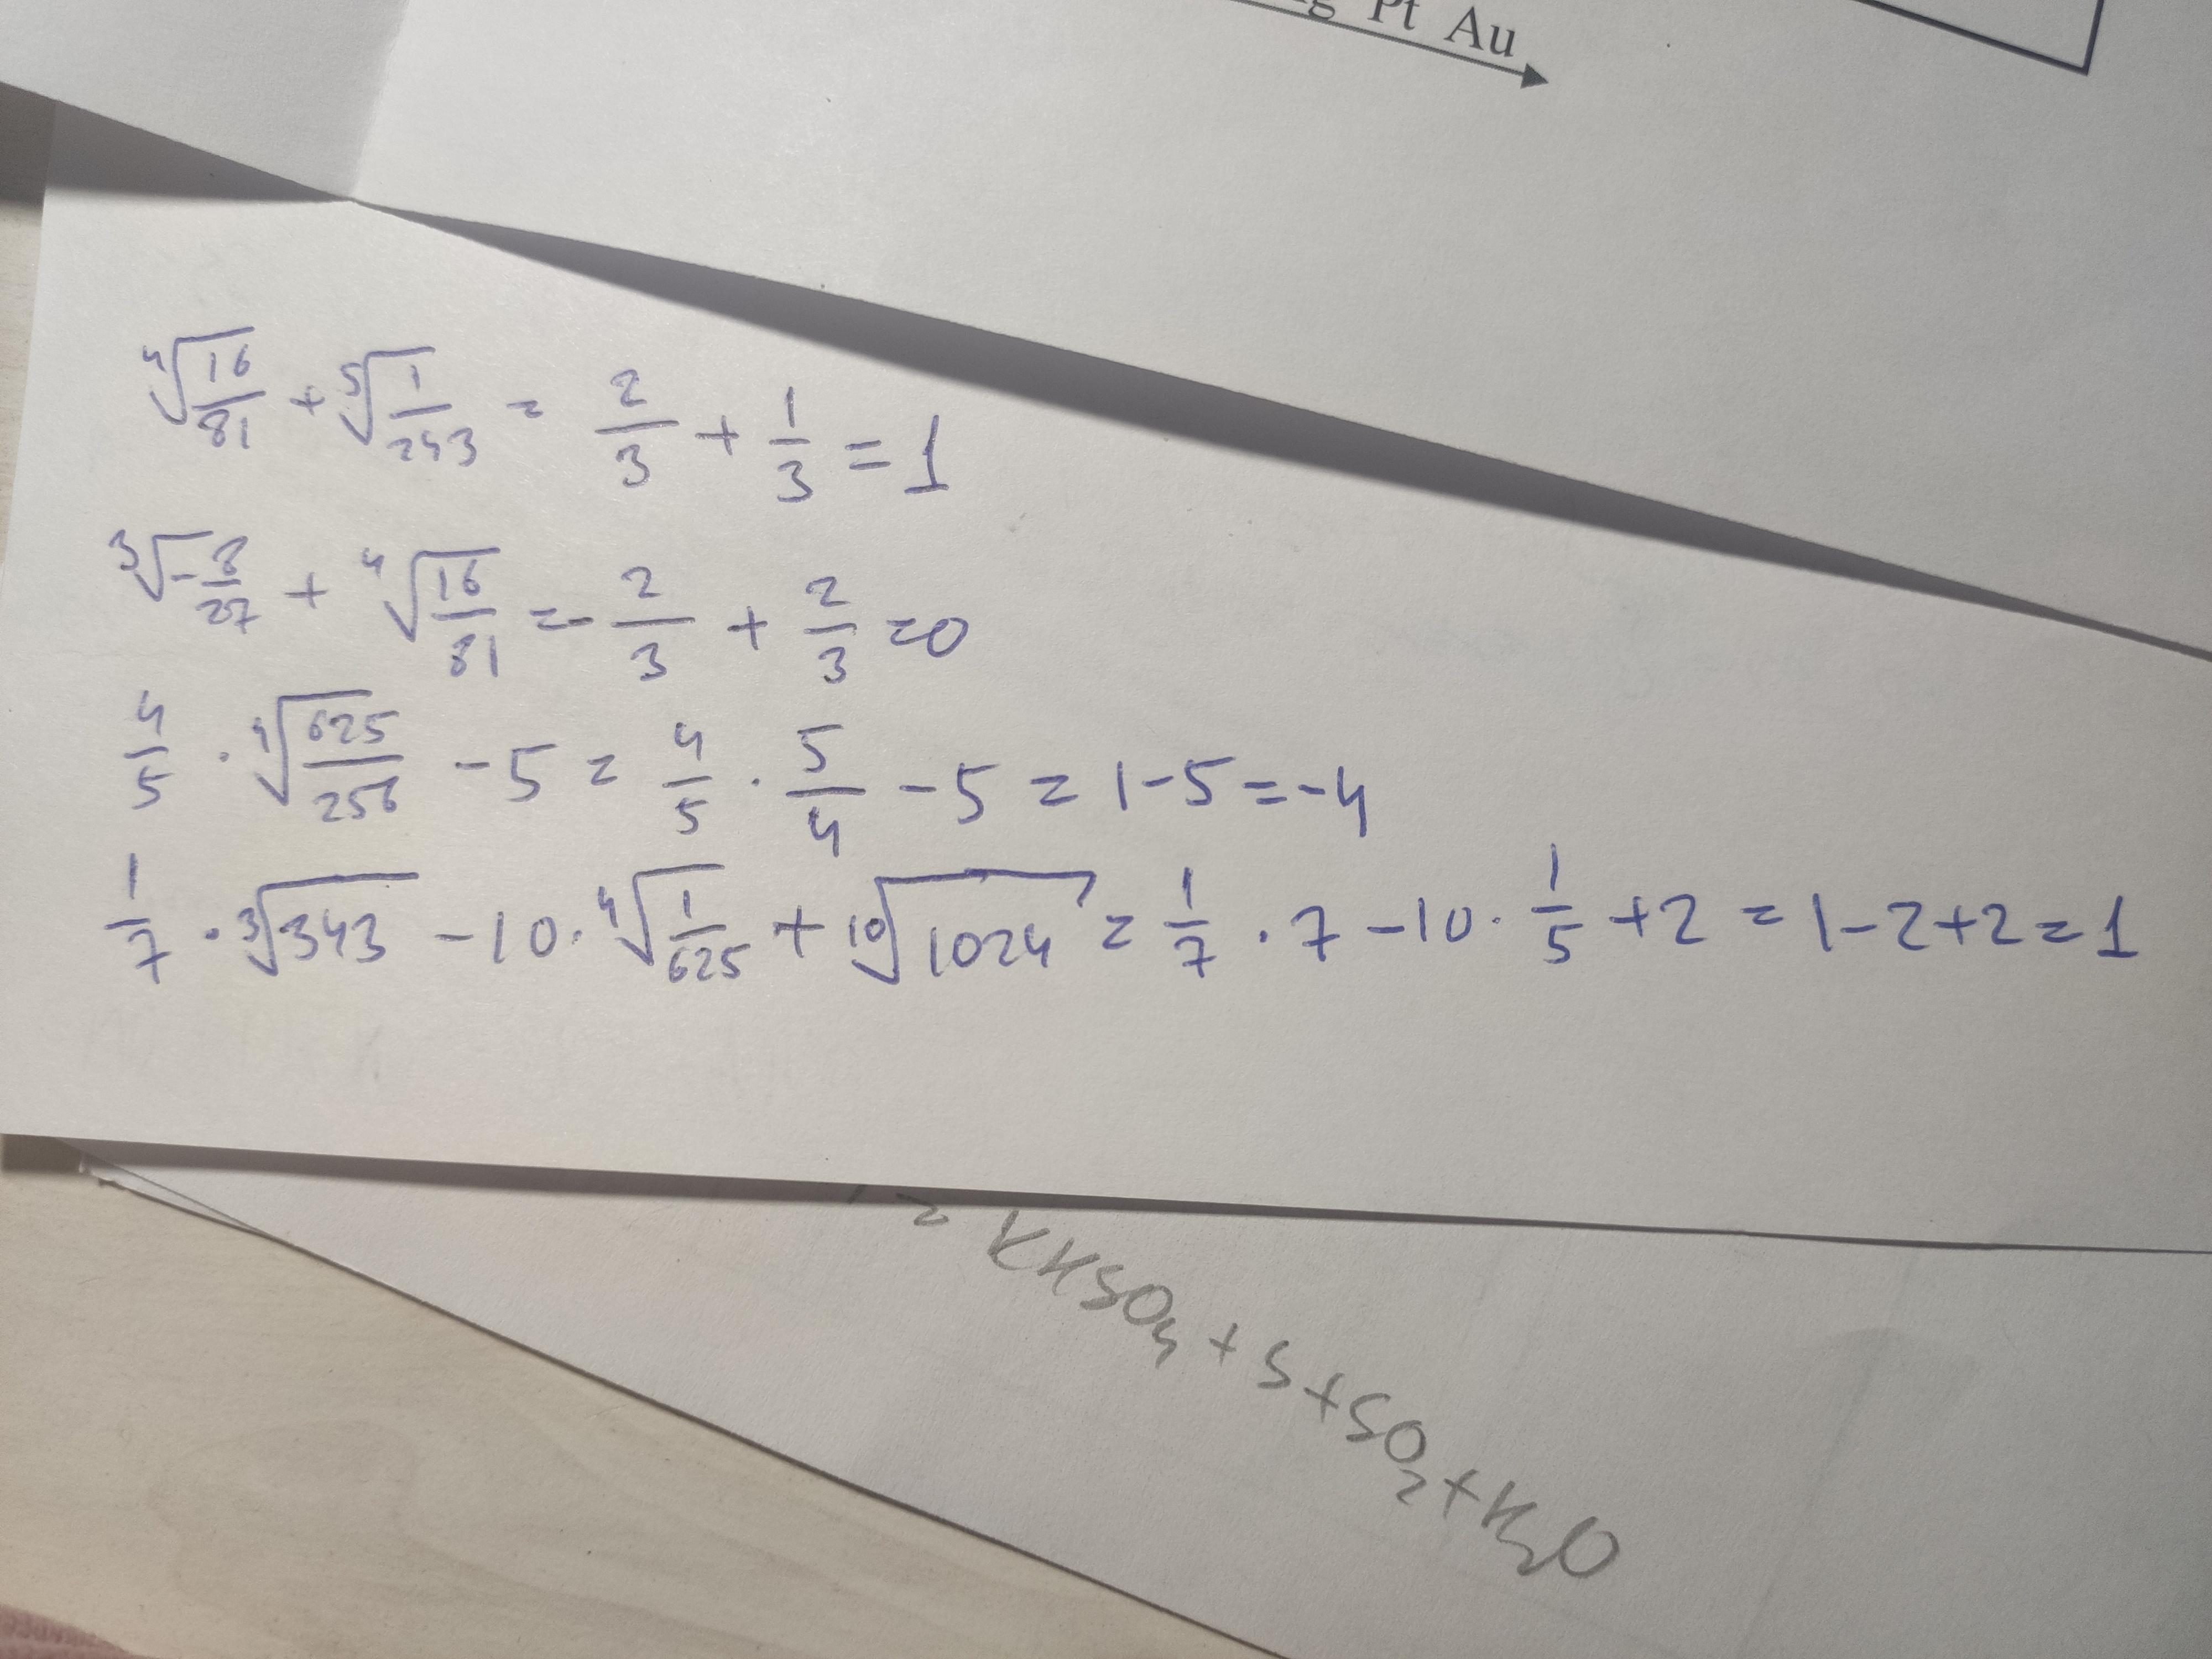 Pt Au
⁴√(16/81) + ⁵√(1/243) = 2/3 + 1/3 = 1
³√(-8/27) + ⁴√(16/81) = -2/3 + 2/3 = 0
4/5 · ⁴√(625/256) - 5 = 4/5 · 5/4 - 5 = 1 - 5 = -4
1/7 · ³√343 - 10 · ⁴√(1/625) + ¹⁰√1024 = 1/7 · 7 - 10 · 1/5 + 2 = 1 - 2 + 2 = 1
= KHSO₄ + S + SO₂ + H₂O